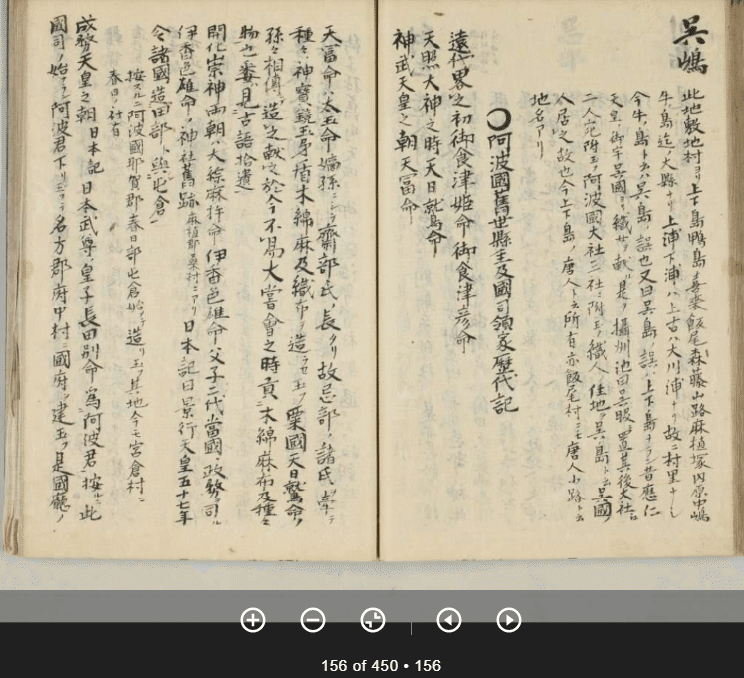 呉嶋
此地敷地村ヨリ上下島鴨島喜来飯尾森藤山路麻植塚内原中嶋
牛島迄ノ大縣ナリ上浦下浦ハ上古ハ大川浦ナリ故ニ村里ナシ
今牛島ト云ハ呉島ノ誤也又曰呉島ノ誤ハ上下島ナラン昔應仁
天皇ノ御宇呉國ヨリ織女ヲ献ル是ヲ攝州池田呉服ニ置其後大社ニ
二人宛附玉フ阿波國大社三社ニ附玉フ織人ノ住地ヲ呉島ト云呉國ノ
人居ルノ故也今上下島ノ唐人ト云所有亦飯尾村ニモ唐人小路ト云
地名アリ
○阿波國舊世縣主及國司領家歴代記
遠代畧之初御食津姫命 御食津彦命
天照大神之時天日鷲命
神武天皇之朝天富命
天富命ハ太玉命ノ嫡孫ニシテ齋部氏ノ長タリ故忌部ノ諸氏ヲ率テ
種々ノ神寶鏡玉矛盾木綿麻及織布ヲ造ラセ玉フ粟國天日鷲命ノ
孫々相傳ヘ造之献之於今不易大嘗會之時貢木綿麻布及種々
物也審ニ見古語拾遺
開化崇神両朝ハ大綜麻杵命 伊香色雄命ノ父子二代當國ノ政務ヲ司ル
伊香色雄命ノ神社舊跡麻植郡桒村ニアリ 日本記曰景行天皇五十七年
令諸國造田部與屯倉
按スルニ阿波國那賀郡春日部屯倉始テ造リ玉フ其地今モ宮倉村ニ
春日ノ社有
成務天皇之朝 日本記 日本武尊ノ皇子長田別命為阿波君按ルニ此
國司ノ始ナラン阿波君下リ玉フテ名方郡府中村ニ國府ヲ建玉フ是國廳ノ
156 of 450 • 156